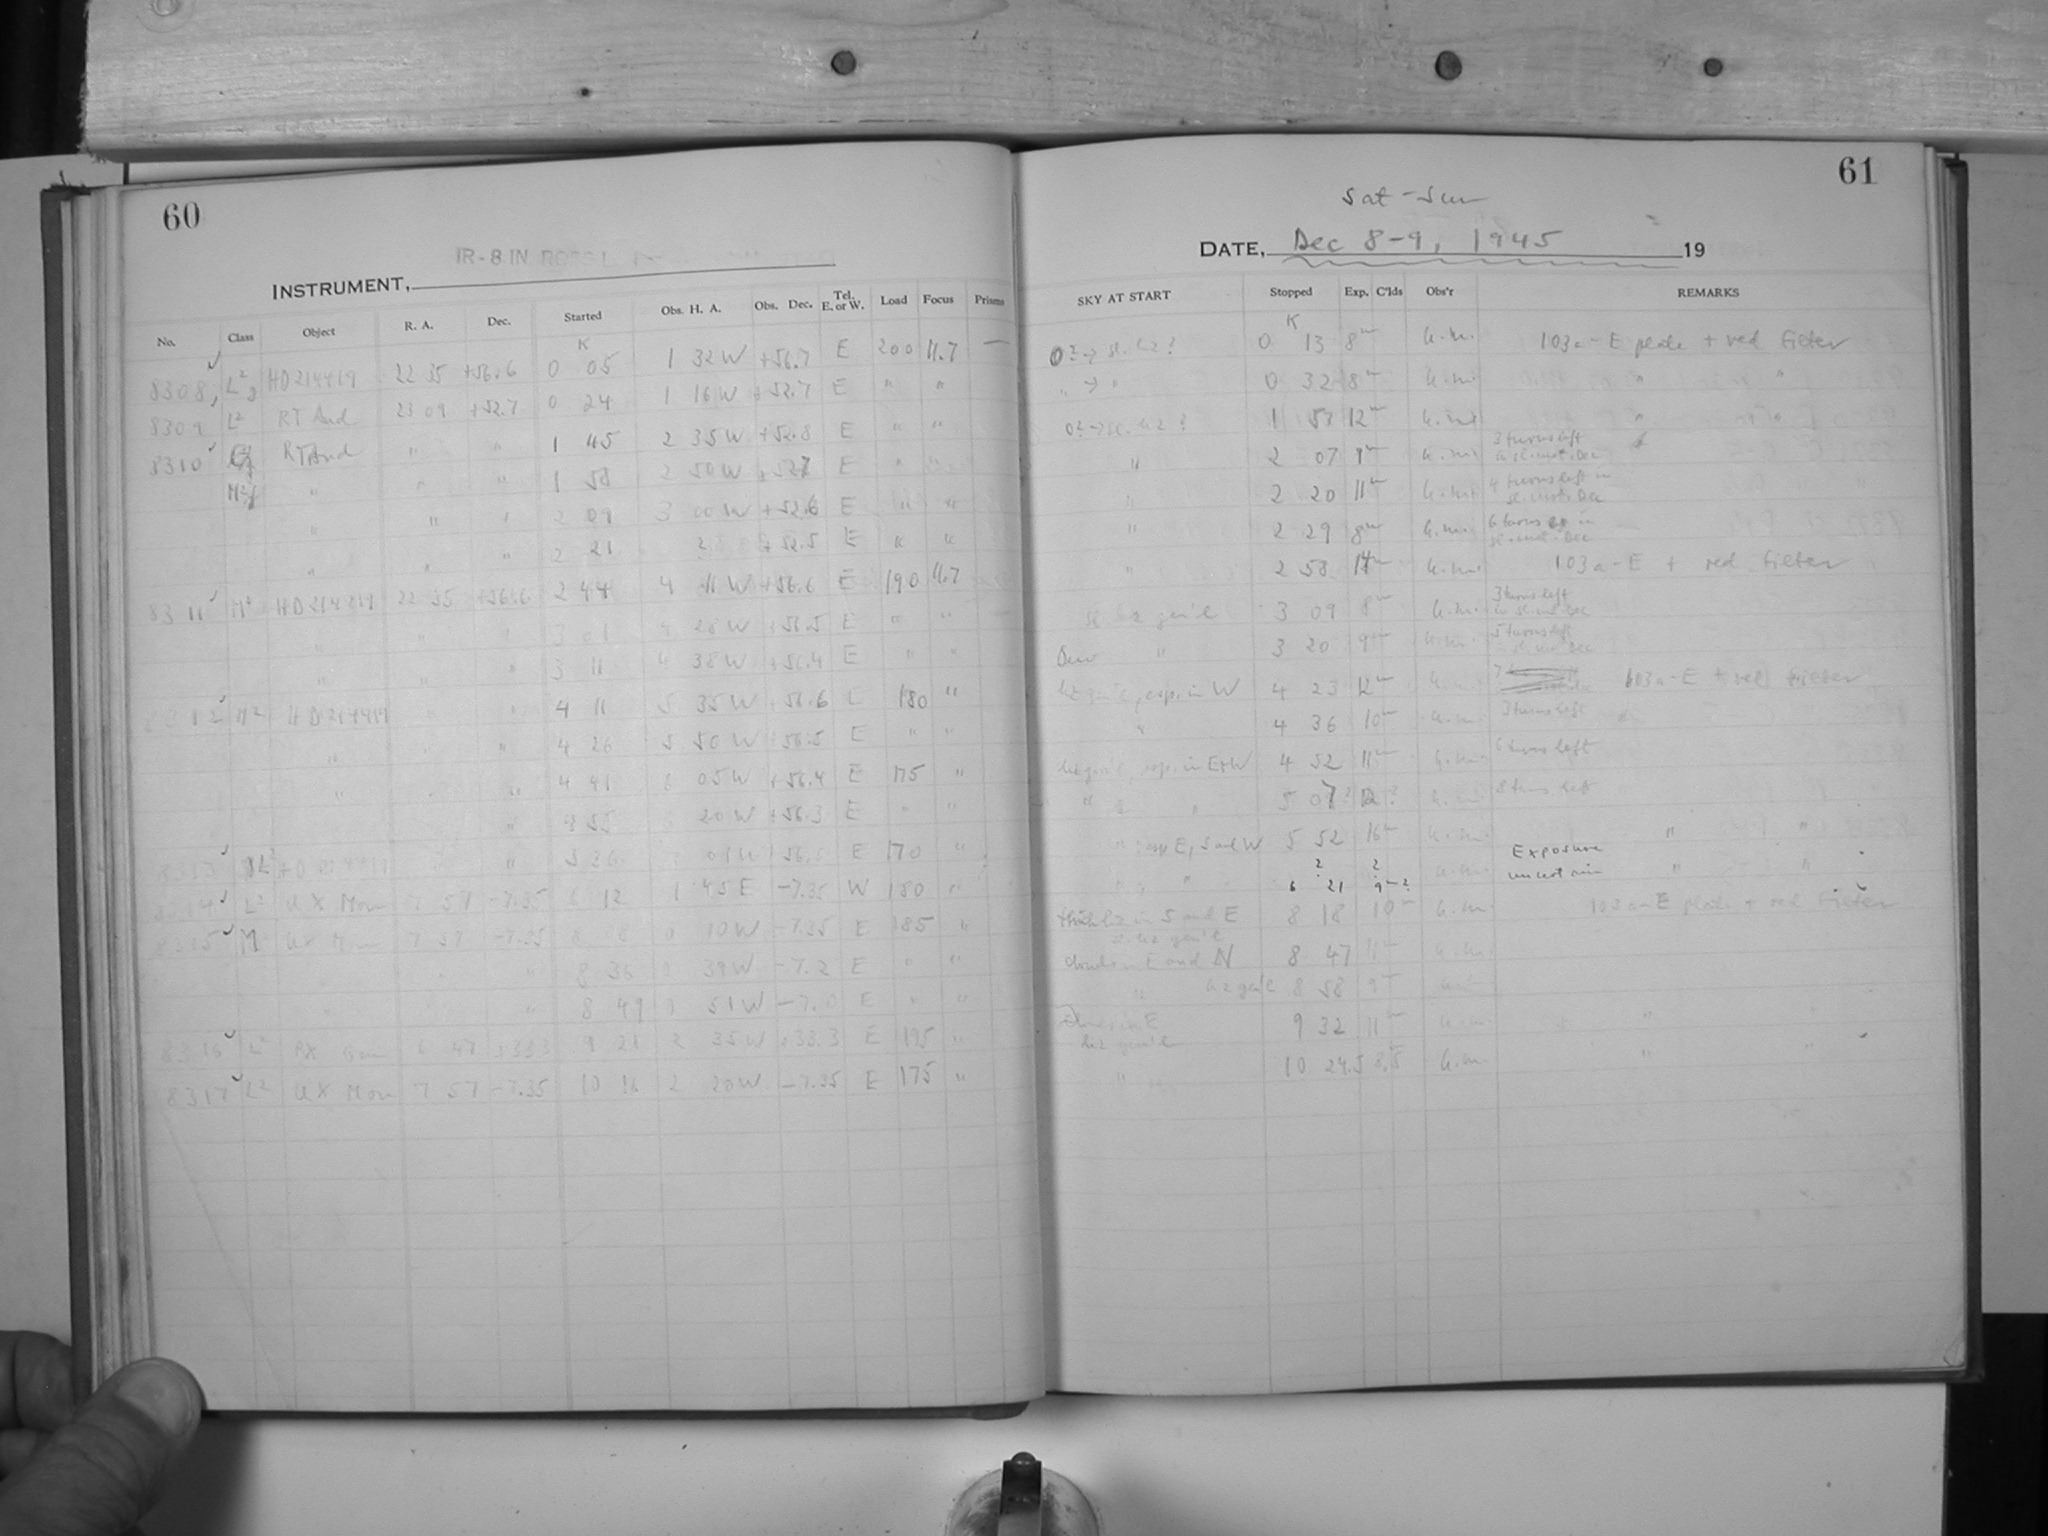 60
IR-8 IN
INSTRUMENT,
No. Class Object R. A. Dec. Started Obs. H. A. Obs. Dec. Tel. E. or W. Load Focus Prisms
K
8308 L² HD 214419 22 35 +56.6 0 05 1 32 W +56.7 E 200 11.7 —
8309 L² RT And 23 09 +52.7 0 24 1 16 W +52.7 E " "
8310 RT And " " 1 45 2 35 W +52.8 E " "
" " " 1 58 2 50 W +52.7 E " "
" " " 2 09 3 00 W +52.6 E " "
" " " 2 21 +52.5 E " "
8311 M² HD 214419 22 35 +56.6 2 44 4 11 W +56.6 E 190 11.7
" " " 3 01 4 28 W +56.5 E " "
" " " 3 11 4 38 W +56.4 E " "
8312 M² HD 214419 " " 4 11 5 35 W +56.6 E 180 "
" " " 4 26 5 50 W +56.5 E " "
" " " 4 41 6 05 W +56.4 E 175 "
" 4 55 20 W +56.3 E " "
8313 L² HD 214419 " " 5 36 E 170 "
8314 L² UX Mon 7 57 -7.35 6 12 1 45 E -7.35 W 180 "
8315 M² UX Mon 7 57 -7.35 8 08 0 10 W -7.35 E 185 "
" " 8 36 0 39 W -7.2 E " "
" " 8 49 0 51 W -7.0 E " "
8316 L² RX Gem 6 47 +33.3 9 21 2 35 W +33.3 E 195 "
8317 L² UX Mon 7 57 -7.35 10 16 2 20 W -7.35 E 175 "
61
Sat-Sun
DATE, Dec 8-9, 1945 19
SKY AT START Stopped Exp. C'lds Obs'r REMARKS
K
0?→ sl. hz? 0 13 8m h.m. 103a-E plate + red filter
" → " 0 32 8m h.m. " "
0?→ sl. hz? 1 57 12m h.m. " "
" 2 07 9m h.m. 3 turns left in sl. mot. Dec
" 2 20 11m h.m. 4 turns left in sl. mot. Dec
" 2 29 8m h.m. 6 turns in sl. mot. Dec
" 2 58 14m h.m. 103a-E + red filter
sl hz gen'l 3 09 8m h.m. 3 turns left in sl. mot. Dec
Dew " 3 20 9m h.m. 5 turns left sl. mot. Dec
hz gen'l, esp. in W 4 23 12m h.m. 103a-E + red filter
" 4 36 10m h.m. 3 turns left
hz gen'l, esp. in E+W 4 52 11m h.m. 6 turns left
" " 5 07? 12? h.m. 8 turns left
" esp E, S and W 5 52 16m h.m. " "
" " 6 21? 9m? h.m. Exposure uncertain " "
thick hz in S and E 8 18 10m h.m. 103a-E plate + red filter
sl. hz gen'l
clouds in E and N 8 47 11m h.m.
" hz gen'l 8 58 9m h.m.
clouds in E 9 32 11m h.m. " "
hz gen'l
" 10 24.5 8.5 h.m. " "